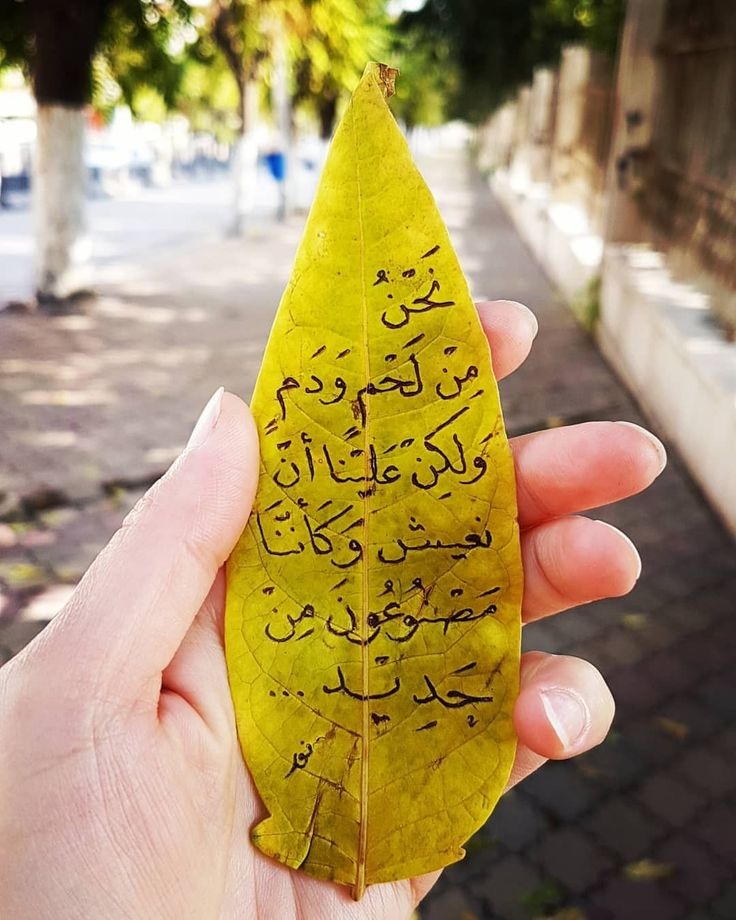 نَحْنُ
مِنْ لَحْمٍ وَدَمٍ
وَلَكِنْ عَلَيْنَا أَنْ
نعيش وَكَأَنَّنَا
مَصْنُوعُونَ مِنْ
حَدِيد...
نور